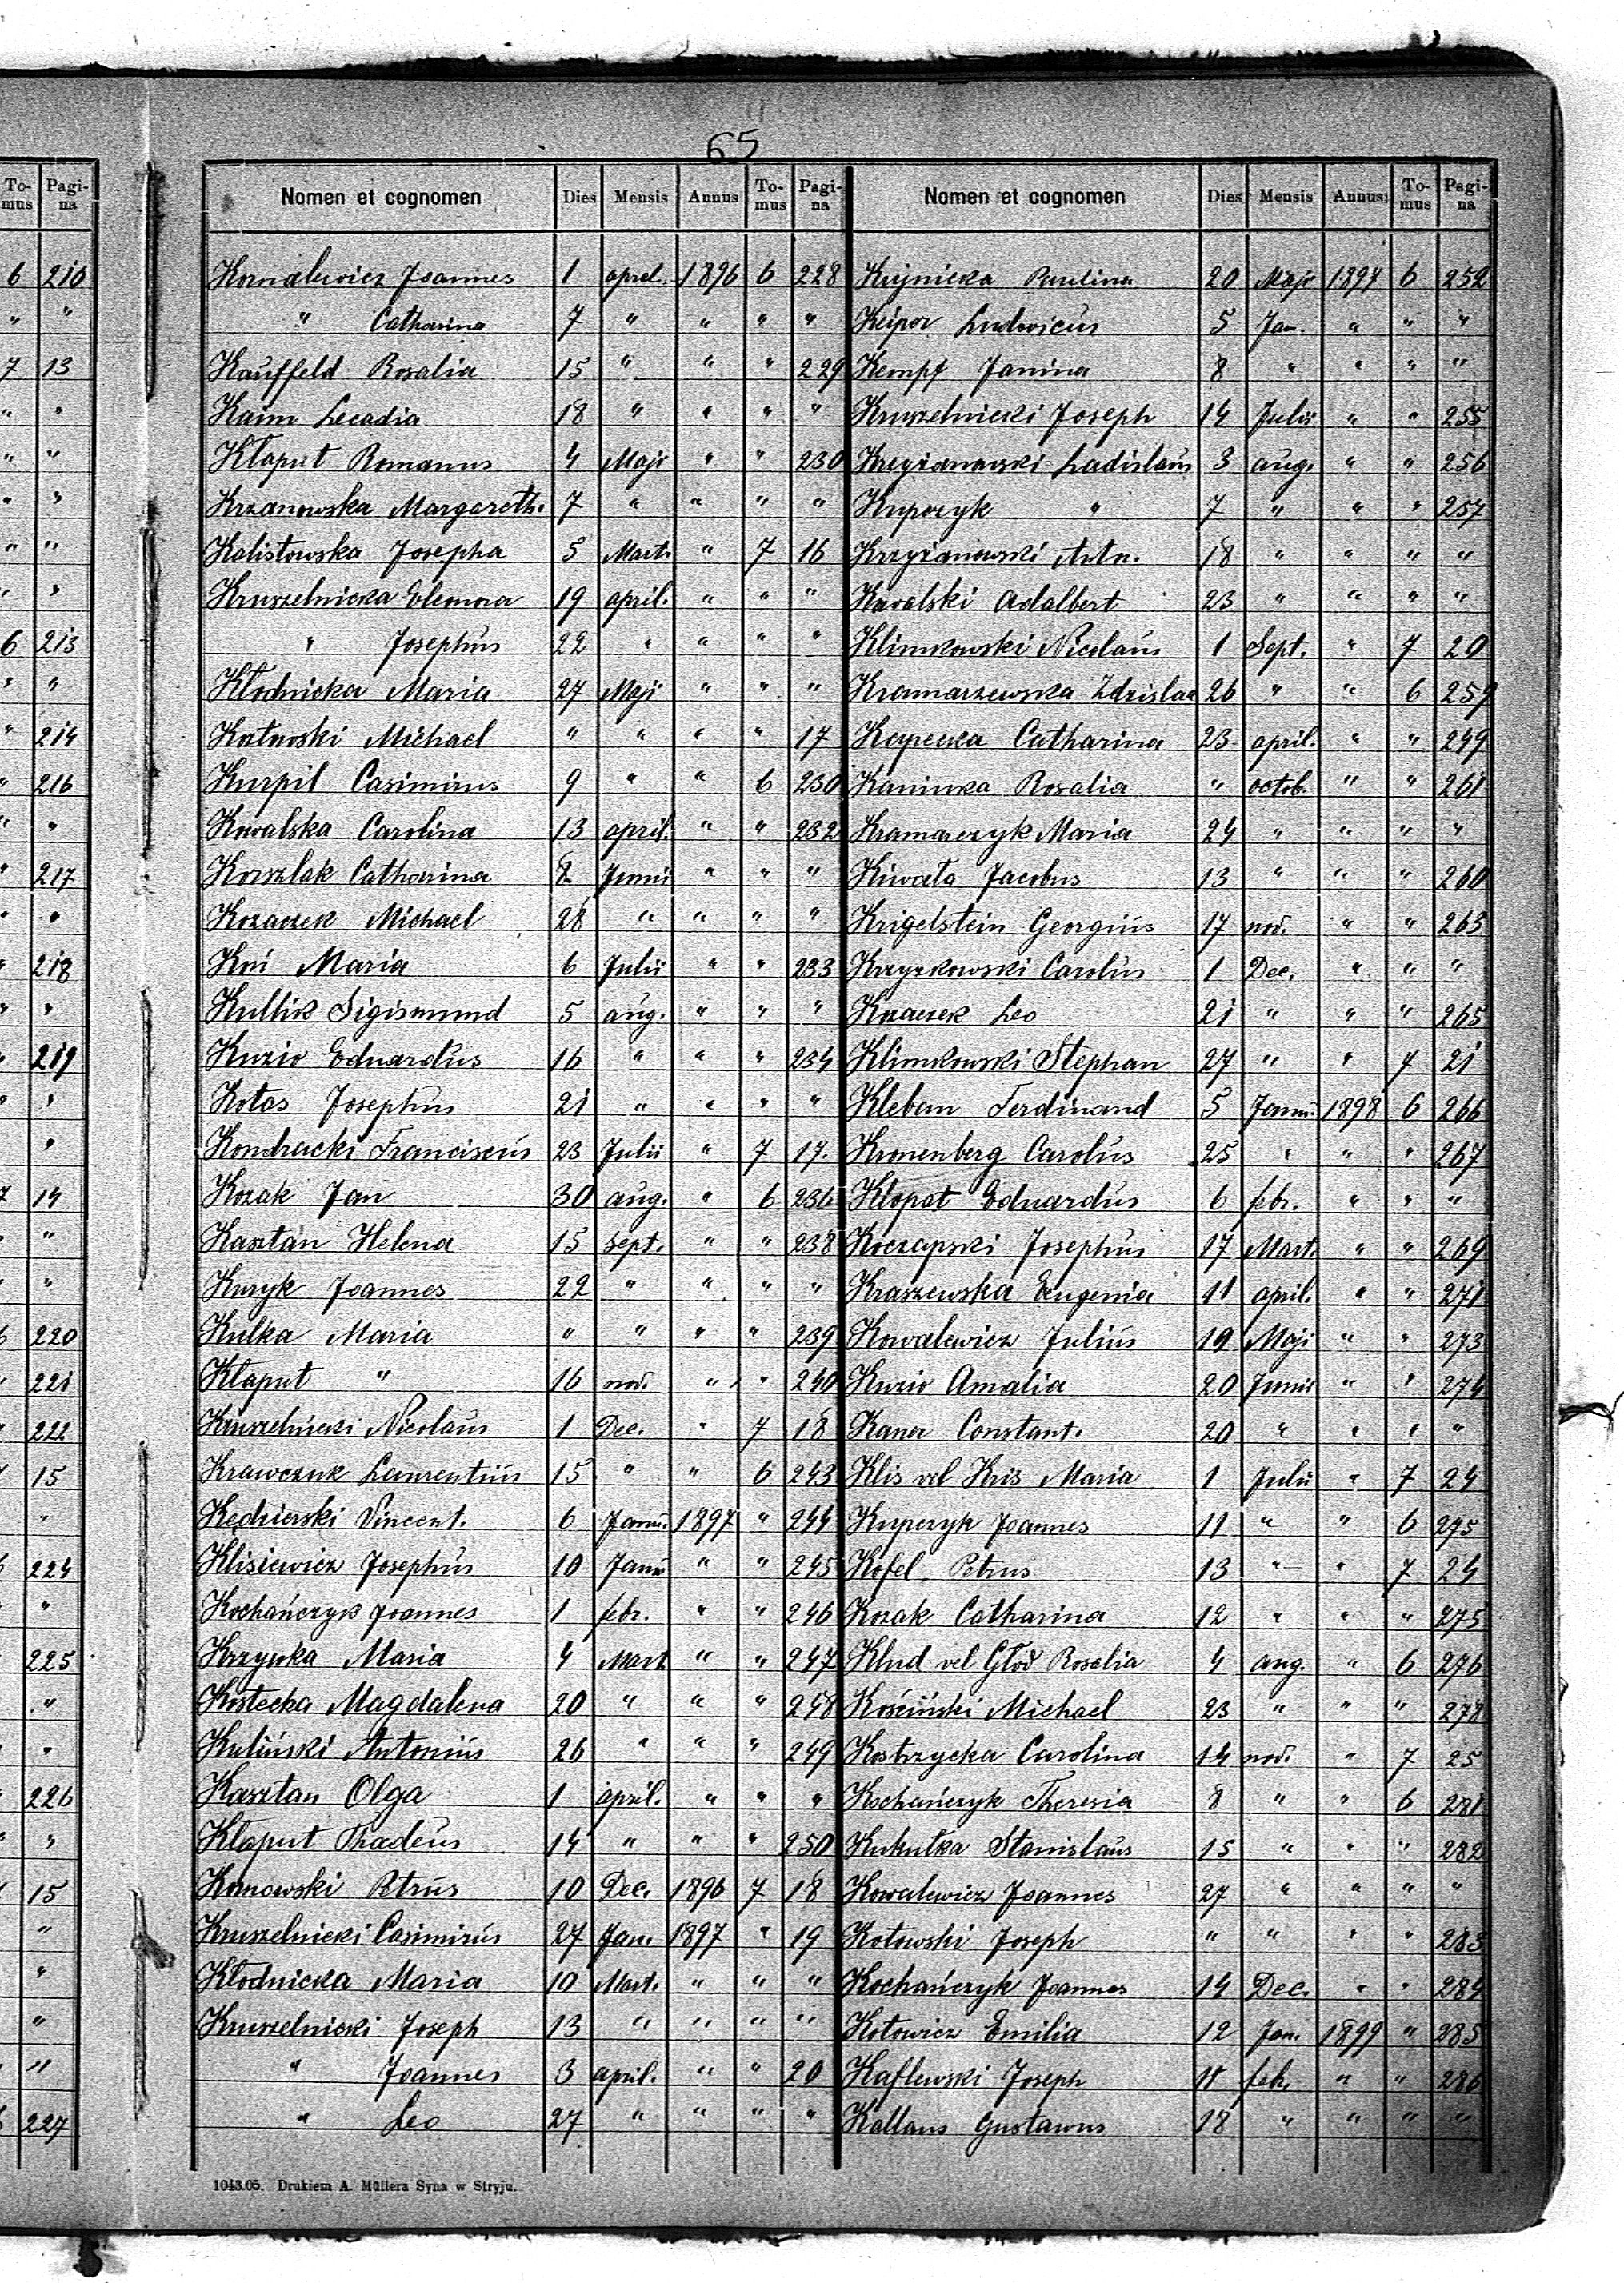 65
To-mus Pagi-na
6 210
" "
7 13
" "
" "
" "
" "
" "
6 213
" "
" 214
" 216
" "
" 217
" "
" 218
" "
" 219
" "
"
14
"
"
220
" 221
222
15
"
224
"
225
"
"
226
"
15
"
"
"
"
227
Nomen et cognomen Dies Mensis Annus To-mus Pagi-na
Kornalewicz Joannes 1 april. 1896 6 228
" Catharina 7 " " " "
Kauffeld Rosalia 15 " " " 229
Kaim Lecadia 18 " " " "
Kłaput Romanus 4 Maji " " 230
Krzanowska Margareth. 7 " " " "
Kalistowska Josepha 5 Mart. " 7 16
Kruszelnicka Eleonora 19 april. " " "
" Josephus 22 " " " "
Kłodnicka Maria 27 Maji " " "
Kotowski Michael " " " " 17
Kurpil Casimirus 9 " " 6 230
Kowalska Carolina 13 april. " " 232
Korszlak Catharina 8 Junii " " "
Kozaczek Michael 28 " " " "
Koń Maria 6 Julii " " 233
Kullik Sigismund 5 aug. " " "
Kuzio Eduardus 16 " " " 234
Kotas Josephus 21 " " " "
Kondracki Franciscus 23 Julii " 7 17.
Kozak Jan 30 aug. " 6 236
Kasztan Helena 15 sept. " " 238
Kuryk Joannes 22 " " " "
Kulka Maria " " " " 239
Kłaput " 16 nov. " " 240
Kruszelnicki Nicolaus 1 Dec. " 7 18
Krawczuk Laurentius 15 " " 6 243
Kędzierski Vincent. 6 Janu. 1897 " 244
Klisiewicz Josephus 10 Janu " " 245
Kochańczyk Joannes 1 febr. " " 246
Krzywka Maria 4 Mart " " 247
Kostecka Magdalena 20 " " " 248
Kuliński Antonius 26 " " " 249
Kasztan Olga 1 april. " " "
Kłaput Thadeus 14 " " " 250
Konowski Petrus 10 Dec. 1896 7 18
Kruszelnicki Casimirus 27 Jan. 1897 " 19
Kłodnicka Maria 10 Mart. " " "
Kruszelnicki Joseph 13 " " " "
" Joannes 3 april. " " 20
" Leo 27 " " " "
Nomen et cognomen Dies Mensis Annus To-mus Pagi-na
Paulina 20 Maji 1897 6 252
Keipor Ludovicus 5 Jan. " " "
Kempf Janina 8 " " " "
Kruszelnicki Joseph 14 Julii " " 255
Krzyżanowski Ladislaus 3 aug. " " 256
Kuporzyk " 7 " " " 257
Krzyżanowski Antn. 18 " " " "
Kowalski Adalbert 23 " " " "
Klimkowski Nicolaus 1 Sept. " 7 20
Kramarzewska Zdzislaa 26 " " 6 259
Catharina 23 april. " " 249
Kaniuka Rosalia " octob. " " 261
Kramarczyk Maria 24 " " " "
Kiwała Jacobus 13 " " " 260
Krigelstein Georgius 17 nov. " " 263
Krzyzkowski Carolus 1 Dec. " " "
Kozaczek Leo 21 " " " 265
Klimkowski Stephan 27 " " 7 21
Kleban Ferdinand 5 Janu. 1898 6 266
Kronenberg Carolus 25 " " " 267
Klopot Eduardus 6 febr. " " "
Koczapski Josephus 17 Mart. " " 269
Kraszewska Eugenia 11 april. " " 271
Kowalewicz Julius 19 Maji " " 273
Kuzio Amalia 20 Junii " " 274
Kaner Constant. 20 " " " "
Klis vel Kris Maria 1 Julii " 7 24
Kuperzyk Joannes 11 " " 6 275
Kofel Petrus 13 " " 7 24
Kozak Catharina 12 " " " 275
Klud vel Głod Rosalia 4 aug. " 6 276
Kościński Michael 23 " " " 278
Kostrzycka Carolina 14 nov. " 7 25
Kochańczyk Theresia 8 " " 6 281
Kukułka Stanislaus 15 " " " 282
Kowalewicz Joannes 27 " " " "
Kotowski Joseph " " " " 283
Kochańczyk Joannes 14 Dec. " " 284
Kotowicz Emilia 12 Jan. 1899 " 285
Kaflewski Joseph 11 feb. " " 286
Kallaus Gustawus 18 " " " "
1043.05. Drukiem A. Müllera Syna w Stryju.